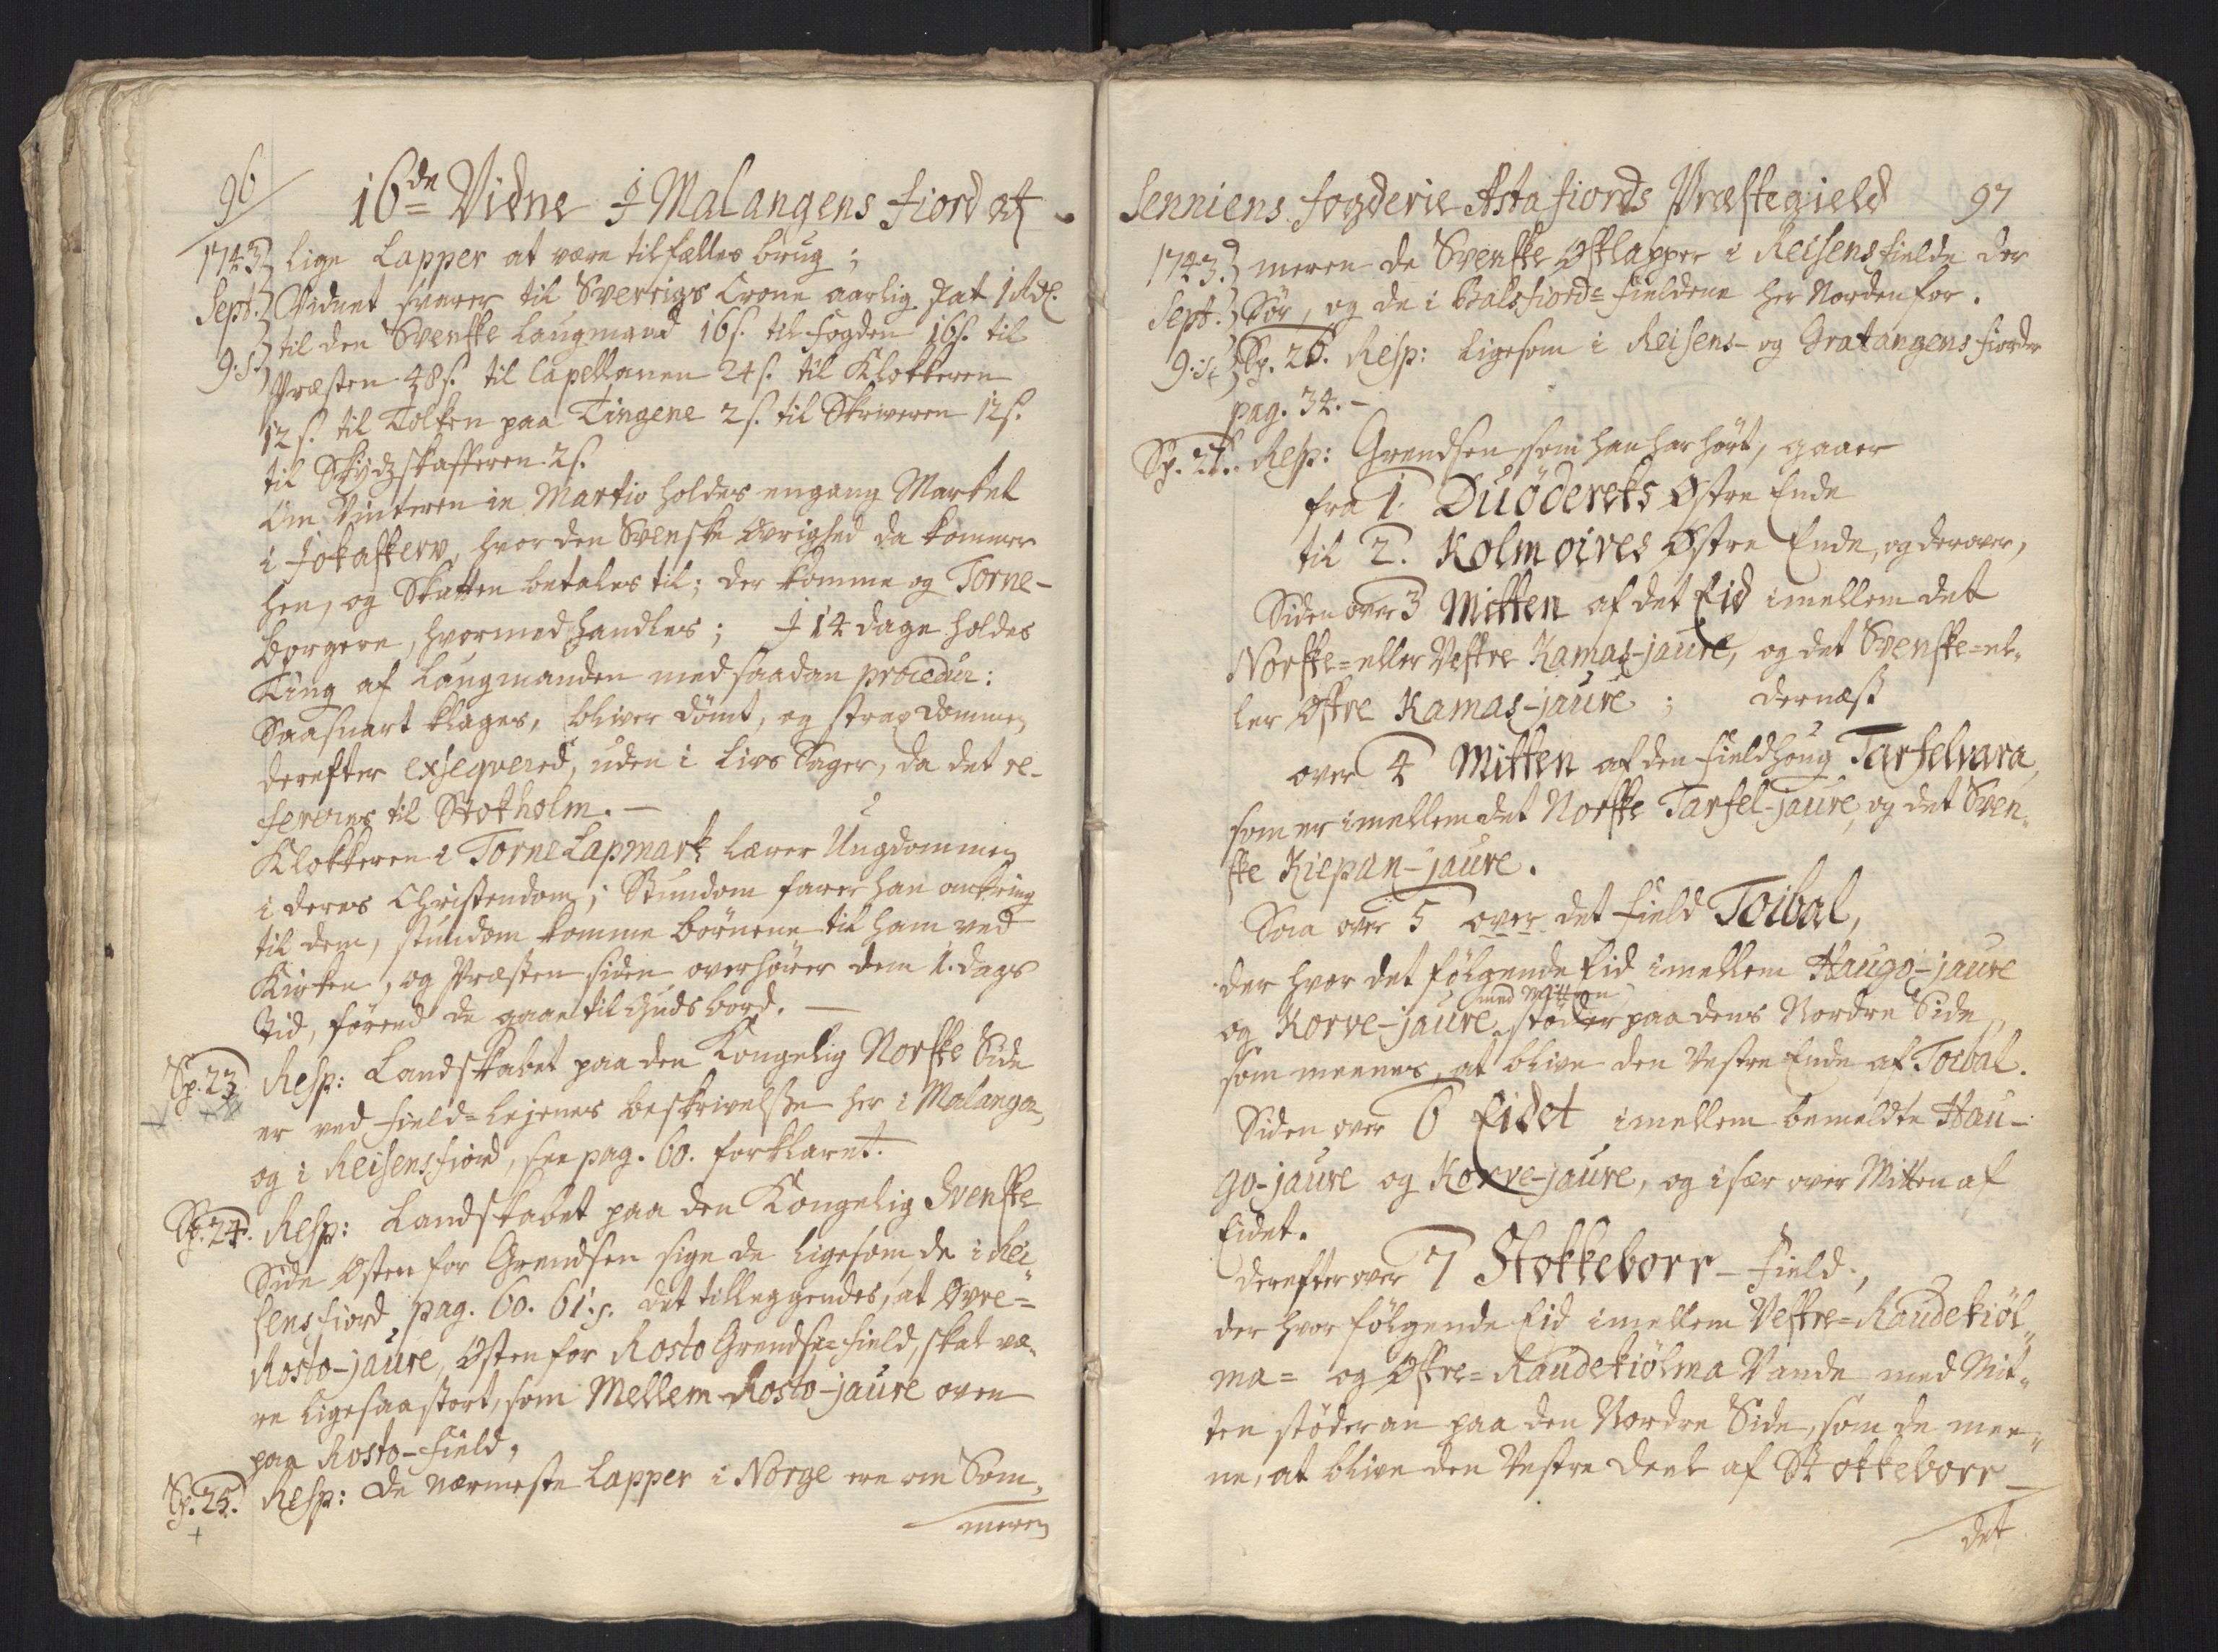 96
16de Vidne I Malangens Fiord af
1743 lige Lapper at være tilfælles brug;
Sept. Vidnet svarer til Sverrigs Crone aarlig Skat 1 Rdl.
9:s. til den Svenske Laugmand 16 s. til Fogden 16 s. til
Præsten 48 s. til Capellanen 24 s. til Klokkeren
12 s. til Tolken paa Tingene 2 s. til Skriveren 12 s.
til Skydzskafferen 2 s.
Om Vinteren in Martio holdes engang Market
i Jokaskerv, hvor den Svenske Øvrighed da kommer
hen, og Skatten betales til; der komme og Torne-
borgere, hvormed handles; I 14 dage holdes
Ting af Laugmanden med saadan procedur:
Saasnart klages, bliver dömt, og strax dommen
derefter exseqvered, uden i Livs Sager, da det re-
fereres til Stokholm. —
Klokkeren i Torne Lapmark lærer Ungdommen
i deres Christendom; Stundom farer han omkring
til dem, stundom komme börnene til ham ved
Kirken, og Præsten siden overhörer dem 1. dags
Tid, förend de gaae til Guds bord. —
Sp. 23 Resp: Landskabet paa den Kongelig Norske Side
er ved Field-Lejernes beskrivelse her i Malangen,
og i Reisensfiord, see pag. 60. forklaret.
Sp. 24. Resp: Landskabet paa den Kongelig Svenske
Side Østen for Grendsen sige de ligesom de i Rei-
sensfiord pag. 60. 61:s. det tilleggendes, at Øvre-
Rosto-jaure, Østen for Rosto Grendse-Field, skal væ-
re ligesaa stort, som Mellem Rosto-jaure oven
paa Rosto-Field.
Sp. 25. Resp: De nærmeste Lapper i Norge ere om Som-
meren
Senniens Fogderie Astafiords Præstegield 97
1743. meren de Svenske Østlapper i Reisens fielde der
Sept. Sör, og de i Balsfiords fieldene her Nordenfor.
9:s. Sp. 26. Resp: ligesom i Reisens- og Gratangens fiorder
pag. 34. —
Sp. 27. Resp: Grendsen som han har hört, gaaer
fra 1. Duöderets Østre Ende
til 2. Kolmoives Østre Ende, og derover,
Siden over 3 Mitten af det Eid imellem det
Norske- eller Vestre Kamas-jaure, og det Svenske- el-
ler Østre Kamas-jaure; dernæst
over 4 Mitten af den Fieldhoug Tarfelvara,
som er imellem det Norske Tarfel-jaure, og det Sven-
ske Kiepan-jaure.
Saa over 5 over det Field Toibal,
der hvor det fölgende Eid imellem Haugo-jaure
med Mitten
og Korve-jaure stöder paa dens Nordre Side,
som meenes, at blive den Vestre Ende af Toibal.
Siden over 6 Eidet imellem bemeldte Hau-
go-jaure og Korve-jaure, og især over Mitten af
Eidet.
derefter over 7 Stokkeborr-Field,
der hvor fölgende Eid imellem Vestre-Raudekiöl-
ma- og Østre-Raudekiölma Vande med Mit-
ten stöder an paa den Nordre Side, som de mee-
ne, at blive den Vestre Deel af Stokkeborr
det